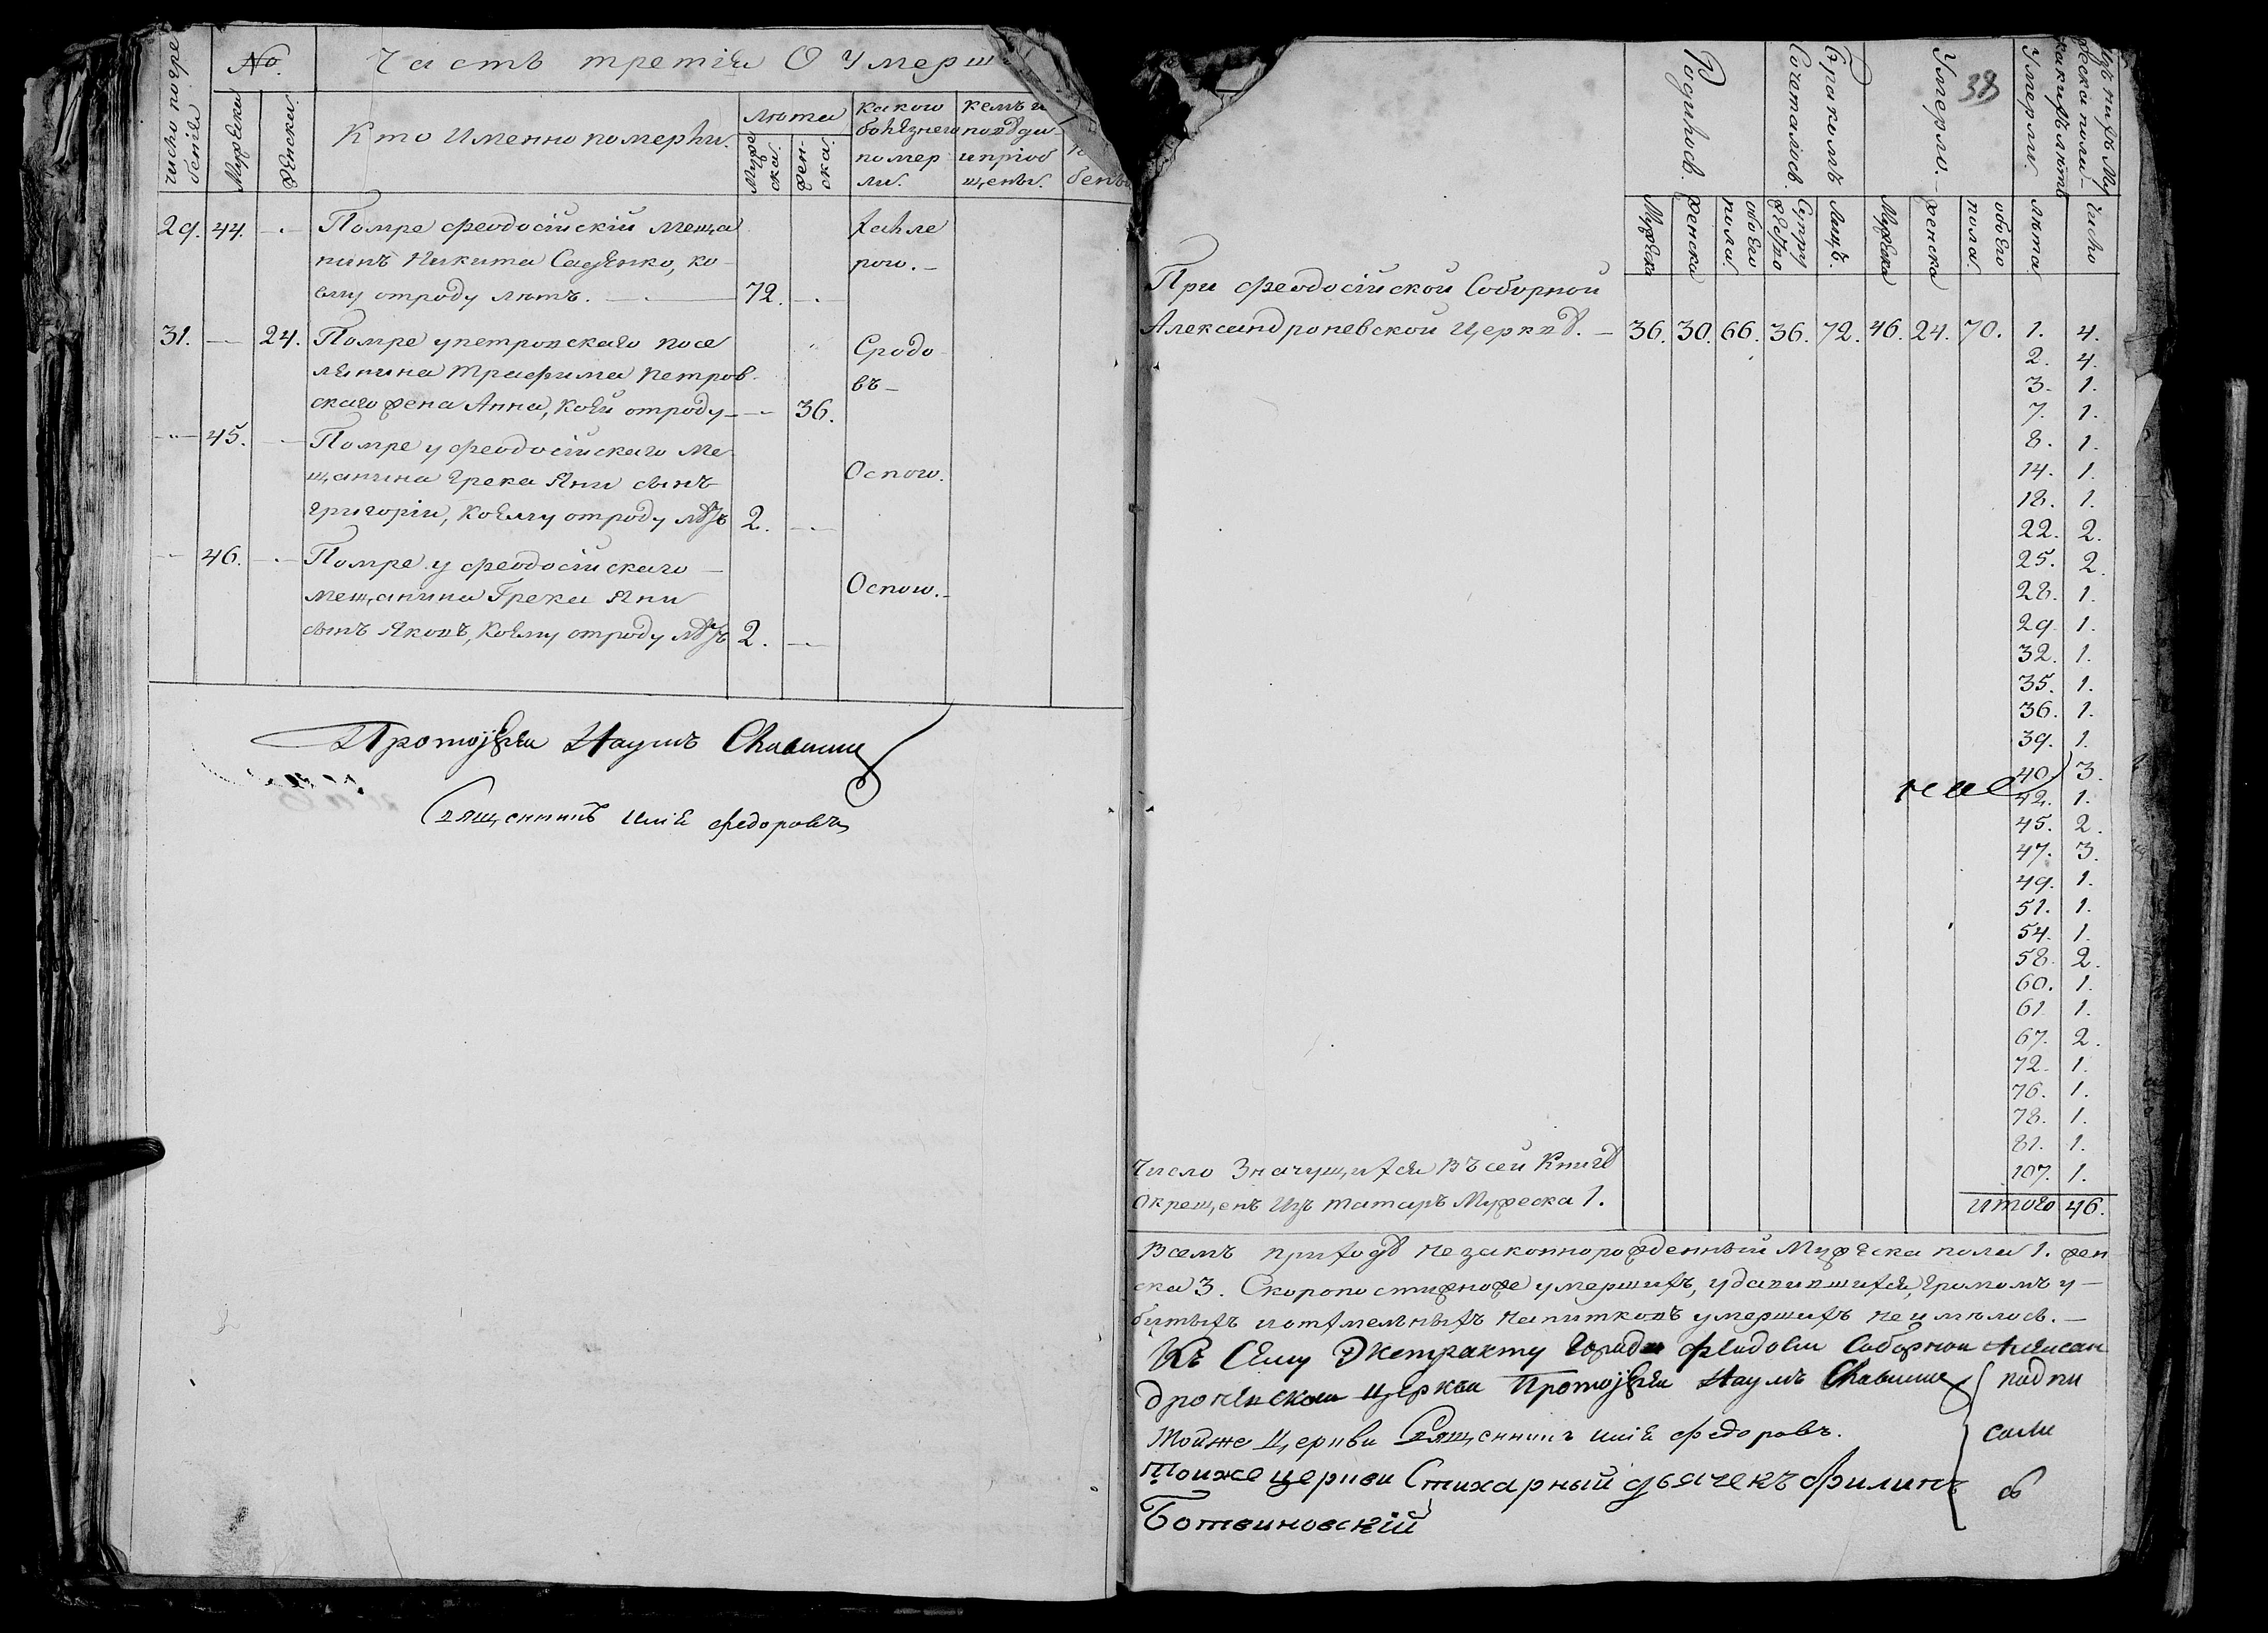 Часть третія О Умерш
число погре
бенія
No.
Мужеска
Женска.
Кто Именно померли.
лѣта
Муже
ска.
жен-
ска.
какою
болѣзнею
помер
ли.
кемъ и
повѣда
и пріоб
щены.
29. 44. Помре феодосійскій меща
нинъ Никита Садѣнко, ко-
ему отроду лѣтъ. 72.
холе
рою.
31. 24. Помре у петровскаго посе
лянина Трафима Петров
скаго жена Анна, коей отроду 36.
Сродо
въ
45. Помре у феодосійскаго Ме
щанина Грека Яни сынъ
Григорій, Коему отроду лѣтъ 2.
Оспою.
46. Помре у феодосійскаго
мещанина Грека Яни
сынъ Яковъ, Коему отроду лѣтъ 2.
Оспою.
Протоіерей Наумъ
Священникъ Илія Федоровъ
38
Родилось.
Бракомъ
Сочеталось.
Умерло.
Изъ нихъ Му
жеска пола
какихъ лѣтъ
Умерли.
Мужеска
Женска
обоего
пола
Супру
жество
Лицъ.
Мужеска
женска
обоего
пола.
лѣта
число
При феодосійской Соборной
Александроневской Церквѣ. 36. 30. 66. 36. 72. 46. 24. 70. 1. 4.
2. 4.
3. 1.
7. 1.
8. 1.
14. 1.
18. 1.
22. 2.
25. 2.
28. 1.
29. 1.
32. 1.
35. 1.
36. 1.
39. 1.
40. 3.
42. 1.
45. 2.
47. 3.
49. 1.
51. 1.
54. 1.
58. 2.
60. 1.
61. 1.
67. 2.
72. 1.
76. 1.
78. 1.
81. 1.
107. 1.
итого 46.
Число Значущихся Въ сей Книгѣ
Окрещенъ Изъ татаръ Мужеска 1.
Всемъ приходѣ незаконнорожденный Мужеска пола 1. жен
ска 3. Скоропостижно умершихъ, удавившихся, громомъ у-
битыхъ и отхмельныхъ напитковъ умершихъ не имѣлось.
Къ Сему Экстракту города Феодосіи Соборной Александ
роневской церкви Протоіерей Наумъ
Тойже Церкви Священникъ Илія Федоровъ.
Тойже церкви Стихарный дьячекъ Филипъ
Ботвиновскій
подпи
сали
сь